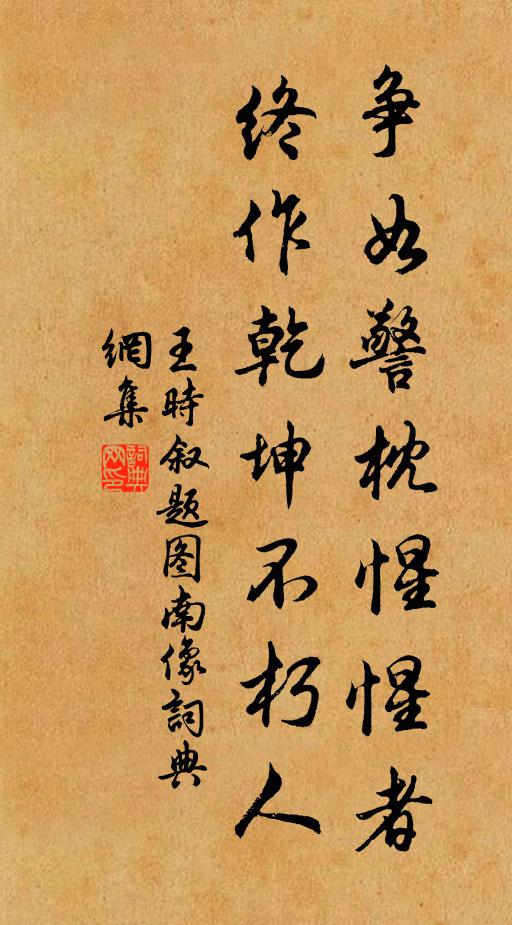 争如警枕惺惺者
终作乾坤不朽人
王時叙题图南像詞典
網集
詞典
网印